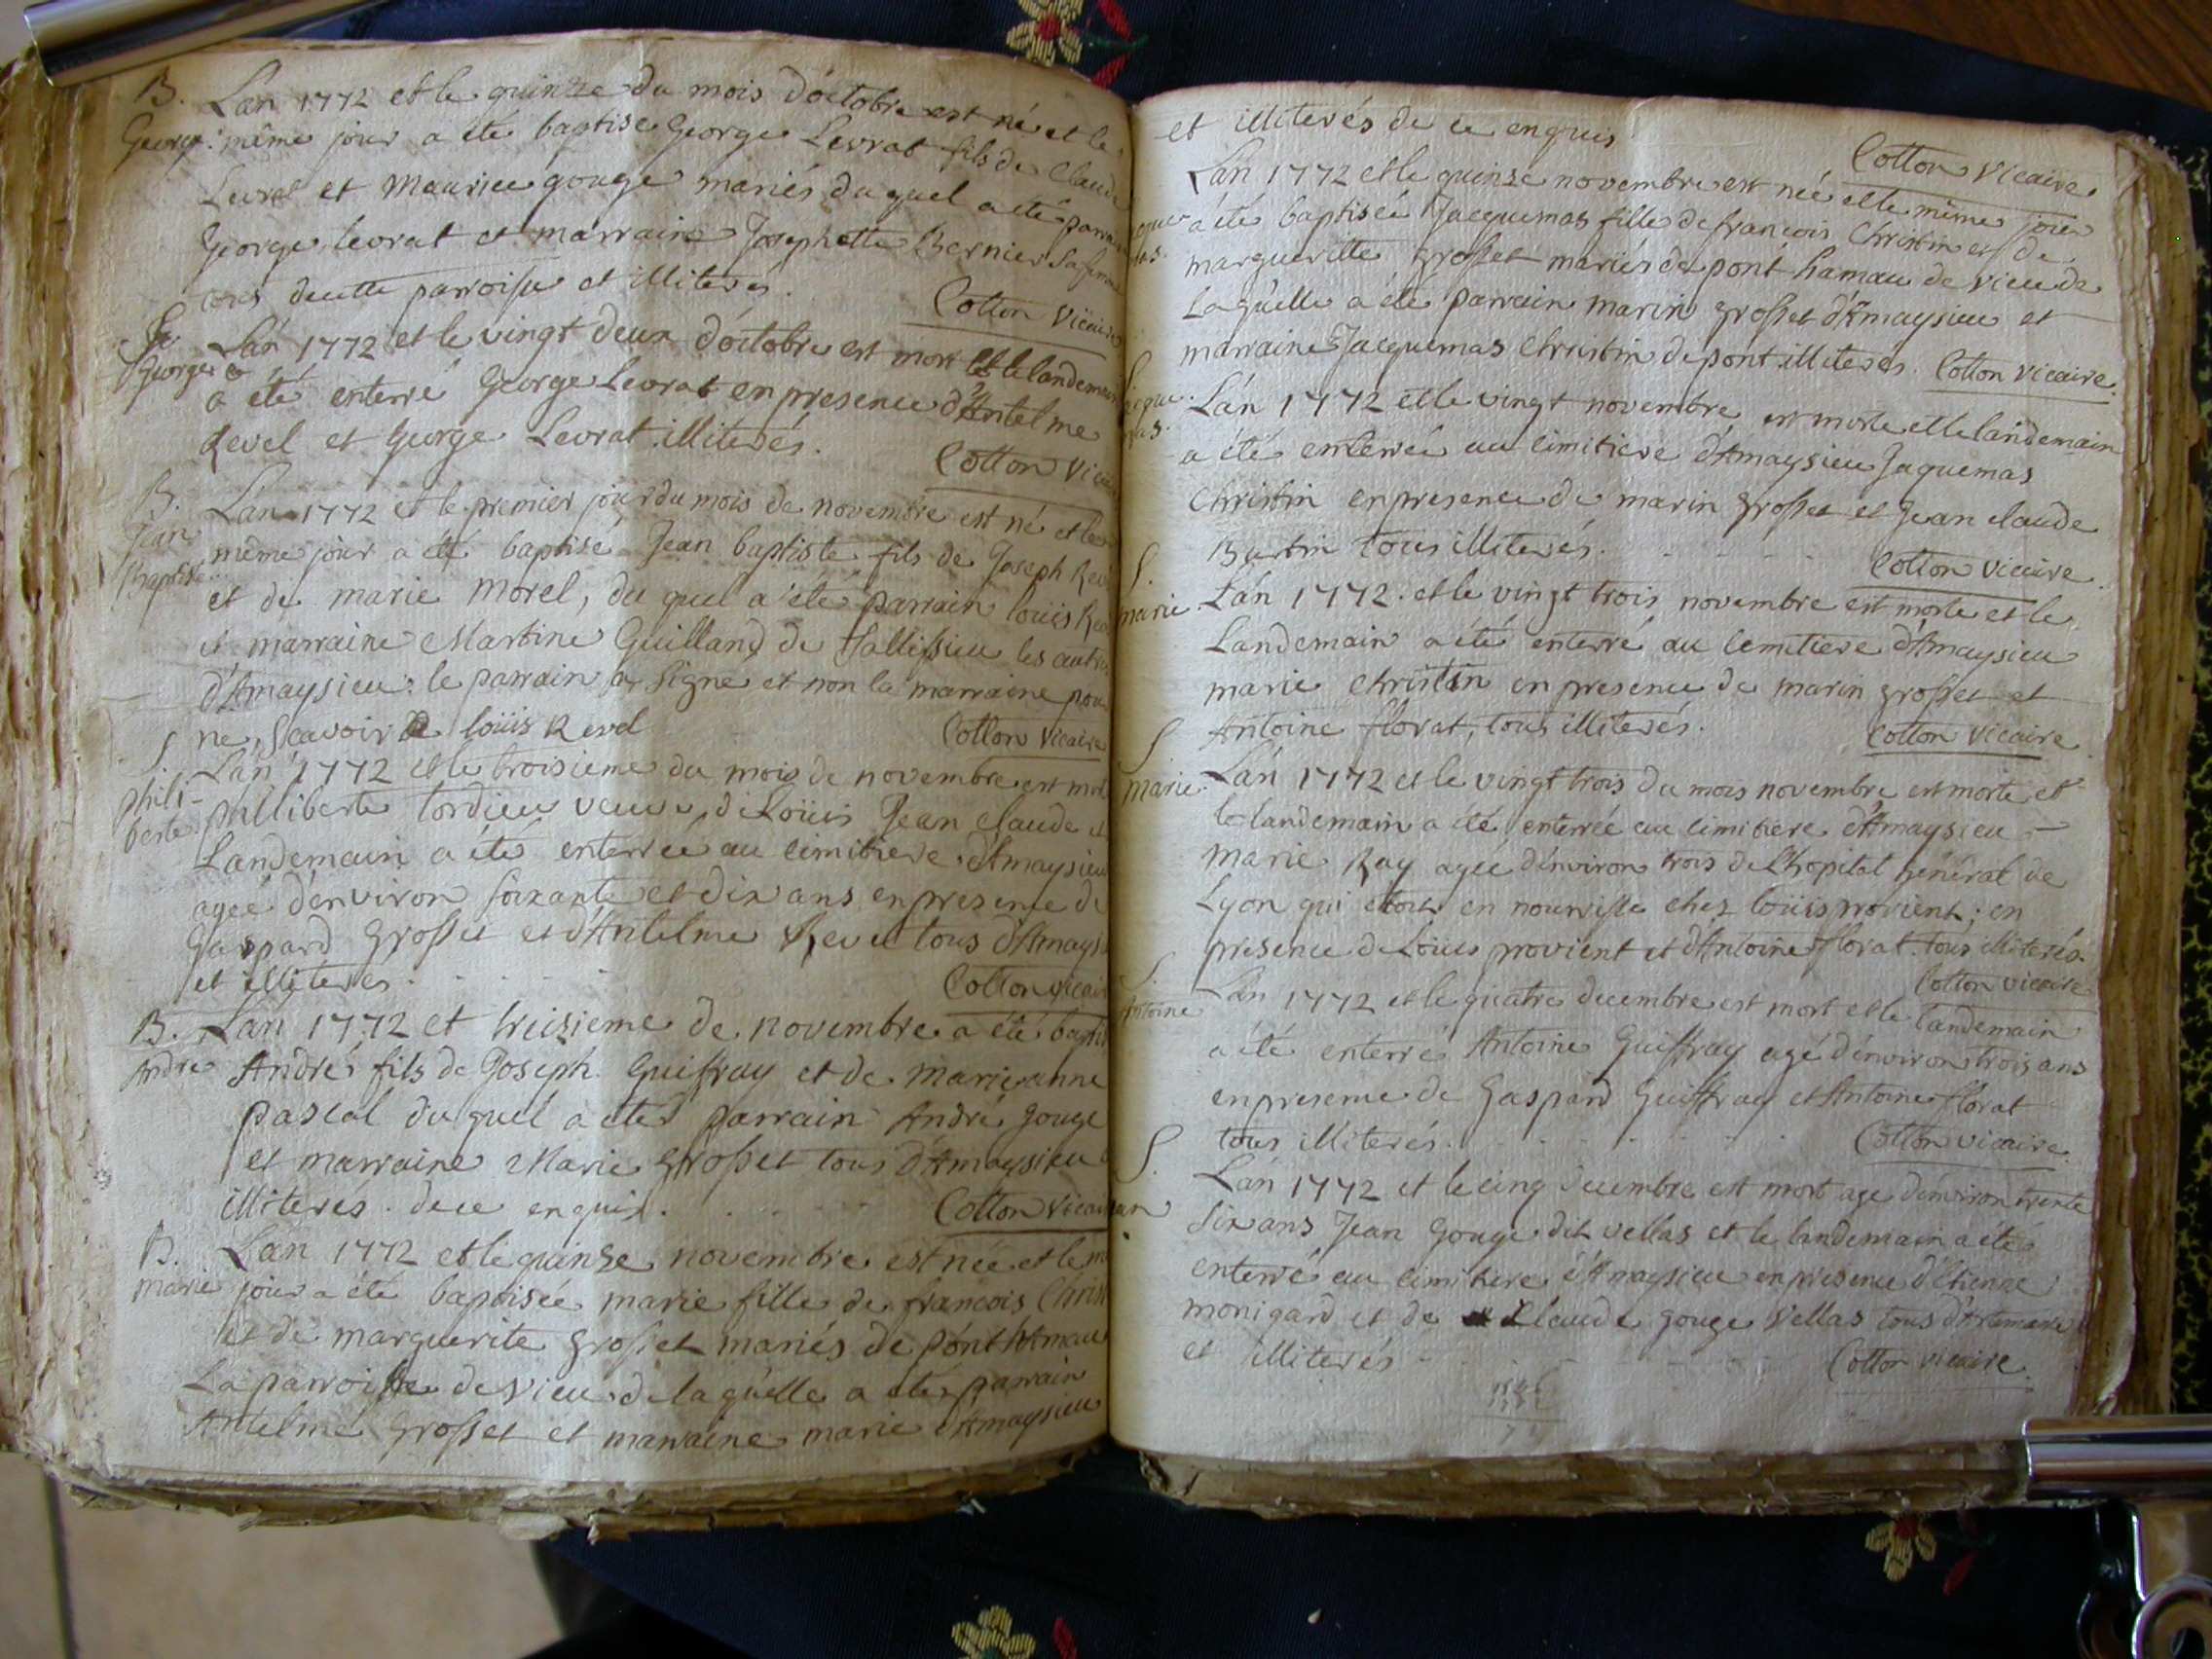 B. Lan 1772 et le quinze du mois d'octobre est né et le
George même jour a été baptise George Levrat fils de Claude
Levrat et Maurice gouge mariés du quel a été parrain
George levrat et marraine Josephette Bernier sa femme
tous de cette parroisse et illiterés.
Cotton Vicaire
S.
George
Lan 1772 et le vingt deux d'octobre est mort et le landemain
a été enterré George Levrat en presence d'Antelme
Revel et George Levrat illiterés.
Cotton Vicaire
B.
Jean
Baptiste
Lan 1772 et le premier jour du mois de novembre est né et le
même jour a été baptisé Jean baptiste fils de Joseph Rev
et de marie Morel, du quel a été parrain louis Rev
et marraine Martine Guilland de Tallissieu les autres
d'Amaysieu: le parrain a signé et non la marraine pour
ne scavoir louis Revel
Cotton Vicaire
S.
phili-
berte
Lan 1772 et le troisieme du mois de novembre est mort
philliberte tordieu veuve de Loüis Jean claude et
Landemain a été enterrée au cimitiere d'Amaysieu
ageé d'environ soixante et dix ans en presence de
Gaspard Grosset et d'Antelme Revel tous d'Amaysi
et illiterés.
Cotton vicaire
B. Lan 1772 et treisieme de novembre a été baptisé
André Andrés fils de Joseph Guiffray et de marieanne
pascal du quel a été parrain André gouge
et marraine Marie Grosset tous d'Amaysieu
illiteres de ce enquis.
Cotton Vicaire
B. Lan 1772 et le quinse novembre est née et le m
marie jour a été baptisée marie fille de francois Christ
et de marguerite grosset mariés de pont hAmeau
La parroisse de vieu de la quelle a été parrain
Antelme Grosset et marraine marie d'Amaysieu
et illiterés de ce enquis
Cotton vicaire
Lan 1772 et le quinse novembre est née et le même jour
a été baptisée Jacquemas fille de francois Christin et de
margueritte grosset mariés de pont hamau de vieu de
Laquelle a été parrain marin grosset d'Amaysieu et
marraine Jacquemas Christin de pont illiterés. Cotton vicaire.
Lan 1772 et le vingt novembre est morte et le landemain
a été enterrée au cimitiere d'Amaysieu Jaquemas
Christin en presence de marin grosset et Jean claude
Burtin tous illiterés.
Cotton vicaire
S.
marie
Lan 1772. et le vingt trois novembre est morte et le
Landemain a été enterré au cemitiere d'Amaysieu
marie Christin en presence de marin grosset et
Antoine florat, tous illiterés.
Cotton Vicaire
S.
marie.
Lan 1772 et le vingt trois du mois novembre est morte et
le landemain a été enterrée au cimitiere d'Amaysieu
Marie Ray ageé d'environ trois de l'hopital général de
Lyon qui etoit en nourrisse chez loüis provient; en
presence de Louis provient et d'Antoine florat tous illiterés.
Cotton vicaire
S.
Antoine
Lan 1772 et le quatre decembre est mort et le landemain
a été enterré Antoine Guiffray agé d'environ trois ans
en presence de Gaspard Guiffray et Antoine florat
tous illiterés.
Cotton vicaire.
S.
Lan 1772 et le cinq decembre est mort age d'environ trente
six ans Jean Gouge dit vellas et le landemain a été
enterré au cimitiere d'Amaysieu en presence d'Etienne
monigard et de Claude gouge vellas tous
et illiterés
Cotton vicaire.